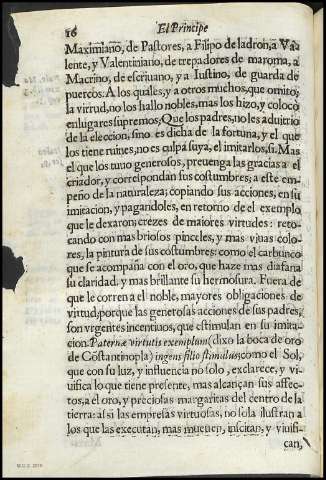 16
El Principe
Maximiano, de Pastores, a Filipo de ladron, a Va
lente, y Valentiniano, de trepadores de maroma, a
Macrino, de escriuano, y a Iustino, de guarda de
puercos. A los quales, y a otros muchos, que omito;
la virtud, no los hallo nobles, mas los hizo, y colocò
en lugares supremos; Que los padres, no les aduitrio
de la eleccion, sino es dicha de la fortuna, y el que
los tiene ruines, no es culpa suya, el imitarlos, si. Mas
el que los tuuo generosos, preuenga las gracias a el
criador, y correspondan sus costumbres; a este em-
peño de la naturaleza; copiando sus acciones, en su
imitacion, y pagandoles, en retorno de el exemplo
que le dexaron; crezes de maiores virtudes: reto-
cando con mas briosos pinceles, y mas viuas colo-
res, la pintura de sus costumbres: como el carbunco
que se acompaña con el oro, que haze mas diafana
su claridad, y mas brillante su hermosura. Fuera de
que le corren a el noble, mayores obligaciones de
virtud, porque las generosas acciones de sus padres,
son vrgentes incentiuos, que estimulan en su imita-
cion. Paternæ virtutis exemplum (dixo la boca de oro
de Cõstantinopla) ingens filio stimulus; como el Sol,
que con su luz, y influencia no solo, exclarece, y vi-
uifica lo que tiene presente, mas alcançan sus affec-
tos, a el oro, y preciosas margaritas del centro de la
tierra: asi las empresas virtuosas, no sola ilustran a
los que las executan, mas mueuen, inscitan, y viuifi-
can,